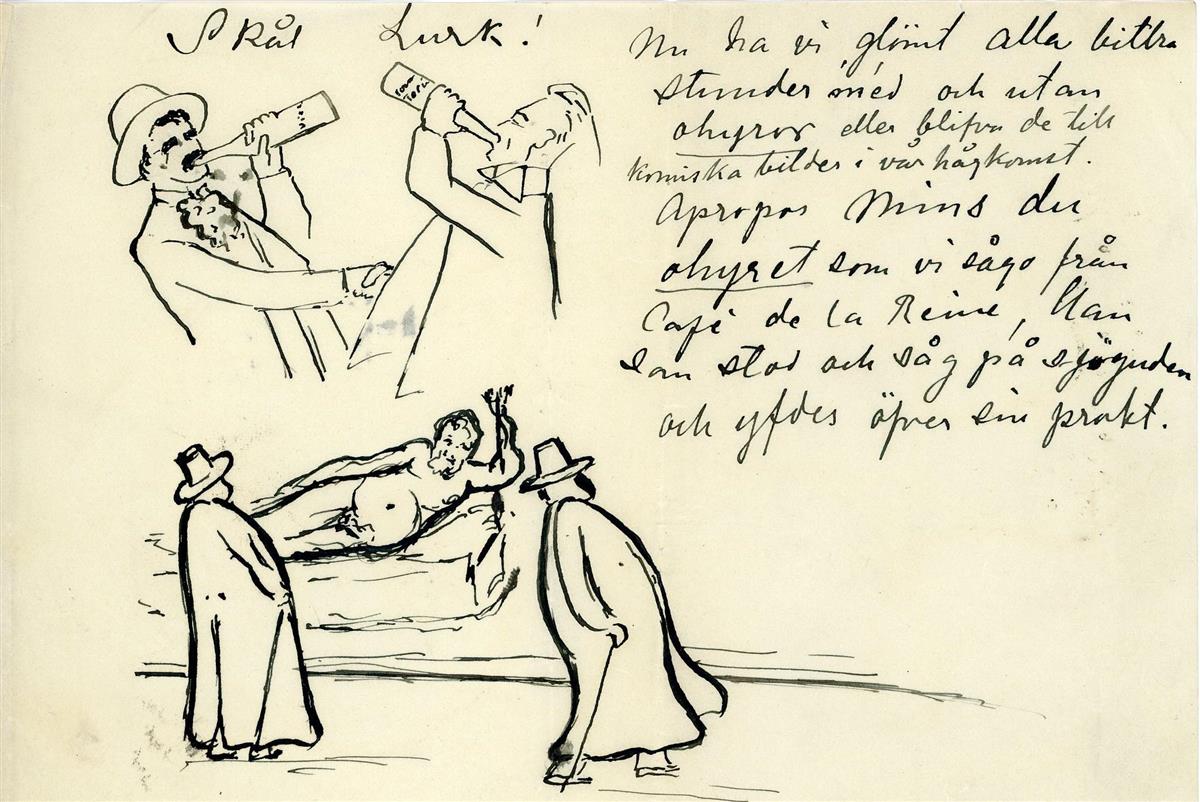 Skål Lurk!
Nu ha vi glömt alla bittra
stunder, med och utan
ohyror eller blifva de till
komiska bilder i vår hågkomst.
Apropos Mins du
ohyret som vi sågo från
Café de la Reine, Han
som stod och såg på sjöguden
och yfdes öfver sin prakt.